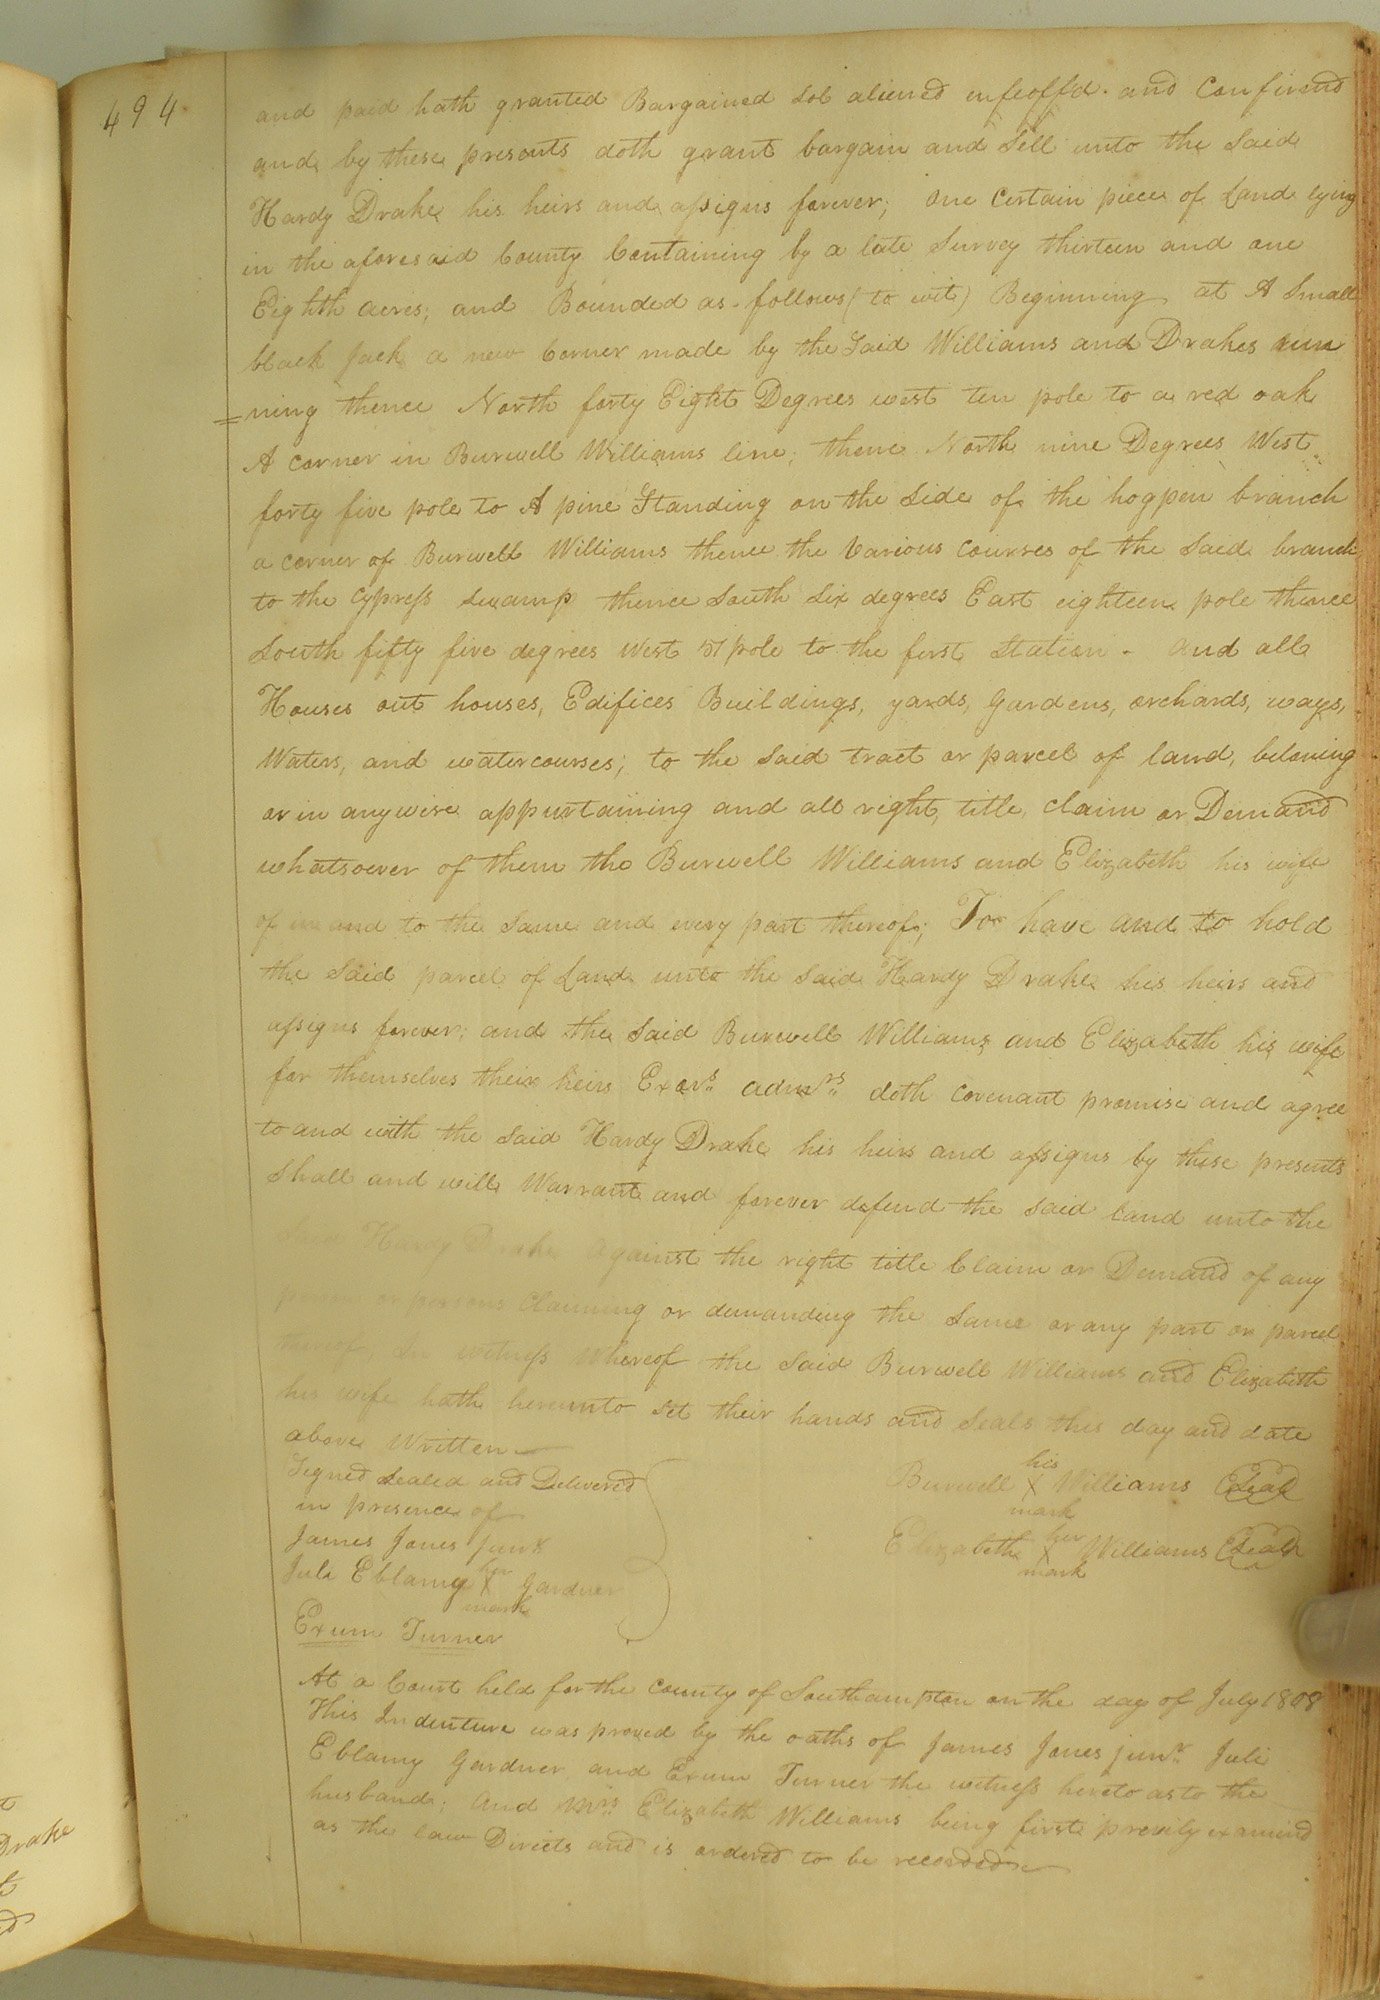 494
and paid hath granted Bargained Sol aliened enfeoff'd. and Confirmd
and by these presents doth grant bargain and Sell unto the Said
Hardy Drake his heirs and assigns forever; One Certain piece of Land lying
in the aforesaid County Containing by a late Survey thirteen and one
Eighth acres; and Bounded as follows (to wit) Beginning at A Small
black Jack a new Corner made by the Said Williams and Drakes run
=ning thence North forty Eight Degrees west ten pole to a red oak
A corner in Burwell Williams line; thence North nine Degrees West
forty five pole to A pine Standing on the Side of the hogpen branch
a corner of Burwell Williams thence the Various Courses of the Said branch
to the Cypress Swamp thence South Six degrees East eighteen pole thence
South fifty five degrees West 51 pole to the first Station - And all
Houses out houses, Edifices Buildings, yards, Gardens, orchards, ways,
Waters, and watercourses; to the Said tract or parcel of land, beloning
or in anywise appurtaining and all right, title, Claim or Demand
whatsoever of them the Burwell Williams and Elizabeth his wife
of in and to the Same and every part thereof; To have and to hold
the Said parcel of Land unto the Said Hardy Drake his heirs and
assigns forever; and the Said Burwell Williams and Elizabeth his wife
for themselves their heirs Exors. admrs. doth Covenant promise and agree
to and with the Said Hardy Drake his heirs and assigns by these presents
Shall and will Warrant and forever defend the Said Land unto the
Hardy Drake against the right title Claim or Demand of any
person or persons Claiming or demanding the Same or any part or parcel
thereof, In witness Whereof the Said Burwell Williams and Elizabeth
his wife hath hereunto Set their hands and Seals this day and date
above Written
Signed Sealed and Deliverd
in presence of
James Jones Junr
Juli Eblamy her X mark Gardner
Exum Turner
Burwell his X mark Williams (Seal)
Elizabeth her X mark Williams (Seal)
At a Court held for the County of Southampton on the day of July 1808
This Indenture was proved by the oaths of James Jones junr. Juli
Eblamy Gardner and Exum Turner the witness hereto as to the
husband; And Mrs. Elizabeth Williams being first privily examind
as the law Directs and is ordered to be recorded
t
Drake